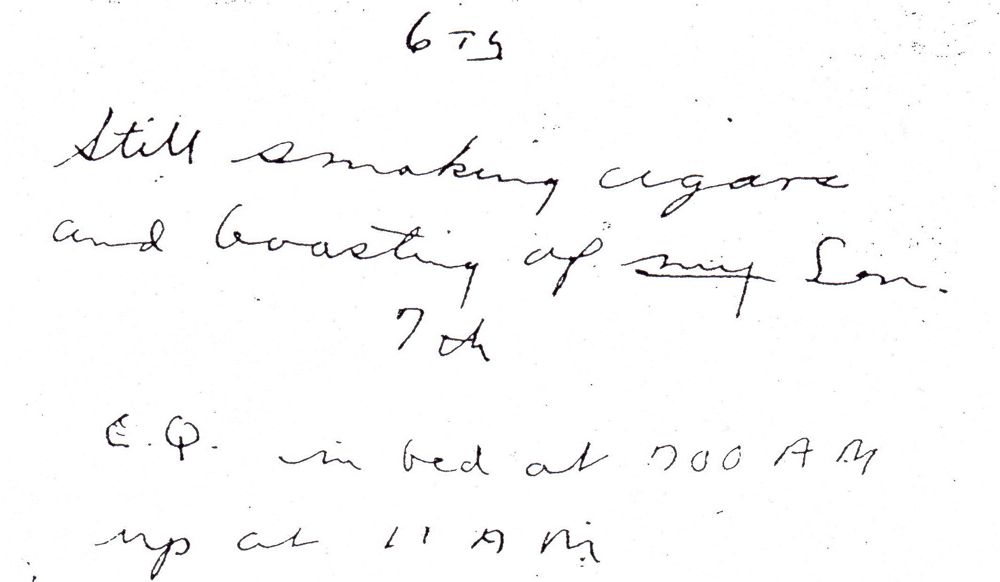 6th
Still smoking cigars
and boasting of my Son.
7th
E.Q. in bed at 700 AM
up at 11 AM